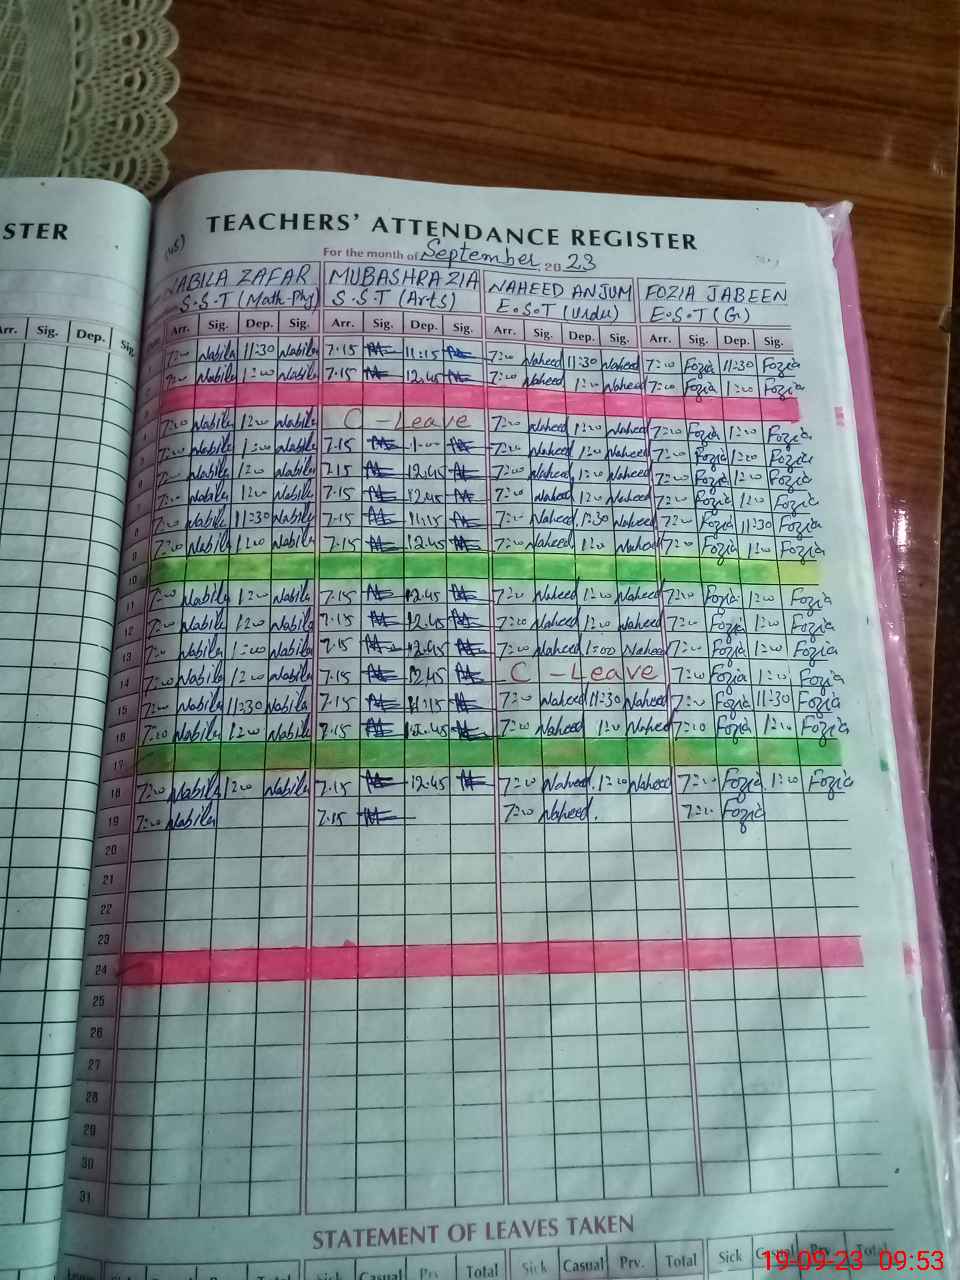 STER
TEACHERS' ATTENDANCE REGISTER
For the month of September 2023
NABILA ZAFAR MUBASHRA ZIA NAHEED ANJUM FOZIA JABEEN
S.S.T (Math-Phy) S.S.T (Arts) E.S.T (Urdu) E.S.T (G)
Arr. Sig. Dep. Sig. Arr. Sig. Dep. Sig. Arr. Sig. Dep. Sig. Arr. Sig. Dep. Sig. Arr. Sig. Dep. Sig.
7:00 Nabila 11:30 Nabila 7.15 11:15 7:00 Naheed 11:30 Naheed 7:00 Fozia 11:30 Fozia
7:00 Nabila 1:00 Nabila 7.15 12.45 7:00 Naheed 1:00 Naheed 7:00 Fozia 1:00 Fozia
7:00 Nabila 1:00 Nabila C-Leave 7:00 Naheed 1:00 Naheed 7:00 Fozia 1:00 Fozia
7:00 Nabila 1:00 Nabila 7.15 1:00 7:00 Naheed 1:00 Naheed 7:00 Fozia 1:00 Fozia
7:00 Nabila 1:00 Nabila 7.15 12.45 7:00 Naheed 1:00 Naheed 7:00 Fozia 1:00 Fozia
7:00 Nabila 1:00 Nabila 7.15 12.45 7:00 Naheed 1:00 Naheed 7:00 Fozia 1:00 Fozia
7:00 Nabila 11:30 Nabila 7.15 11:15 7:00 Naheed 11:30 Naheed 7:00 Fozia 11:30 Fozia
7:00 Nabila 1:00 Nabila 7.15 12.45 7:00 Naheed 1:00 Naheed 7:00 Fozia 1:00 Fozia
10
11 7:00 Nabila 1:00 Nabila 7.15 12.45 7:00 Naheed 1:00 Naheed 7:00 Fozia 1:00 Fozia
12 7:00 Nabila 1:00 Nabila 7.15 12.45 7:00 Naheed 1:00 Naheed 7:00 Fozia 1:00 Fozia
13 7:00 Nabila 1:00 Nabila 7.15 12.45 7:00 Naheed 1:00 Naheed 7:00 Fozia 1:00 Fozia
14 7:00 Nabila 1:00 Nabila 7.15 12.45 C-Leave 7:00 Fozia 1:00 Fozia
15 7:00 Nabila 11:30 Nabila 7.15 11:15 7:00 Naheed 11:30 Naheed 7:00 Fozia 11:30 Fozia
16 7:00 Nabila 1:00 Nabila 7.15 12.45 7:00 Naheed 1:00 Naheed 7:00 Fozia 1:00 Fozia
17
18 7:00 Nabila 1:00 Nabila 7.15 12.45 7:00 Naheed 1:00 Naheed 7:00 Fozia 1:00 Fozia
19 7:00 Nabila 7.15 7:00 Naheed 7:00 Fozia
20
21
22
23
24
25
26
27
28
29
30
31
STATEMENT OF LEAVES TAKEN
Casual Prv. Total Sick Casual Prv. Total Sick Casual Prv. Total
19-09-23 09:53